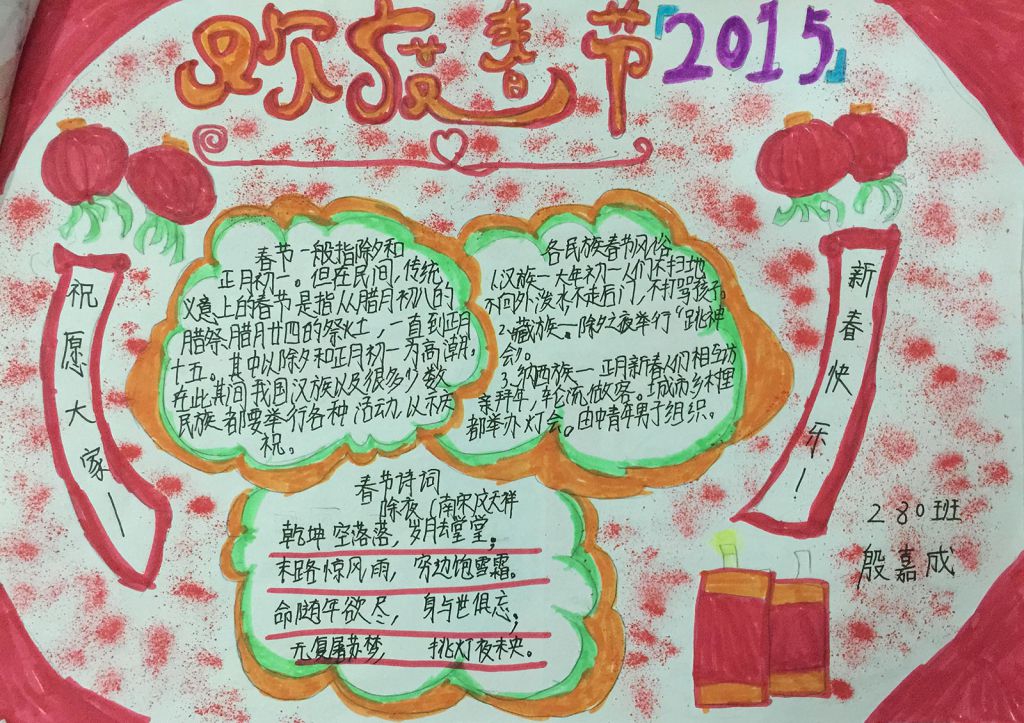 欢度春节「2015」
祝愿大家—
春节一般指除夕和
正月初一。但在民间,传统
义意上的春节是指从腊月初八的
腊祭.腊月廿四的祭灶,一直到正月
十五。其中以除夕和正月初一为高潮.
在此其间我国汉族以及很多少数
民族都要举行各种活动以示庆
祝。
各民族春节风俗
1.汉族—大年初一人们不扫地
不向外泼水,不走后门,不打骂孩子。
2.藏族—除夕之夜举行“跳神
会”。
3.纳西族—正月新春人们相互访
亲拜年,轮流做客。城市乡村里
都举办灯会。由中青年男子组织.
新春快乐!
春节诗词
除夜(南宋)文天祥
乾坤空落落,岁月去堂堂;
末路惊风雨,穷边饱雪霜。
命随年欲尽,身与世俱忘;
无复屠苏梦,挑灯夜未央。
280班
殷嘉成